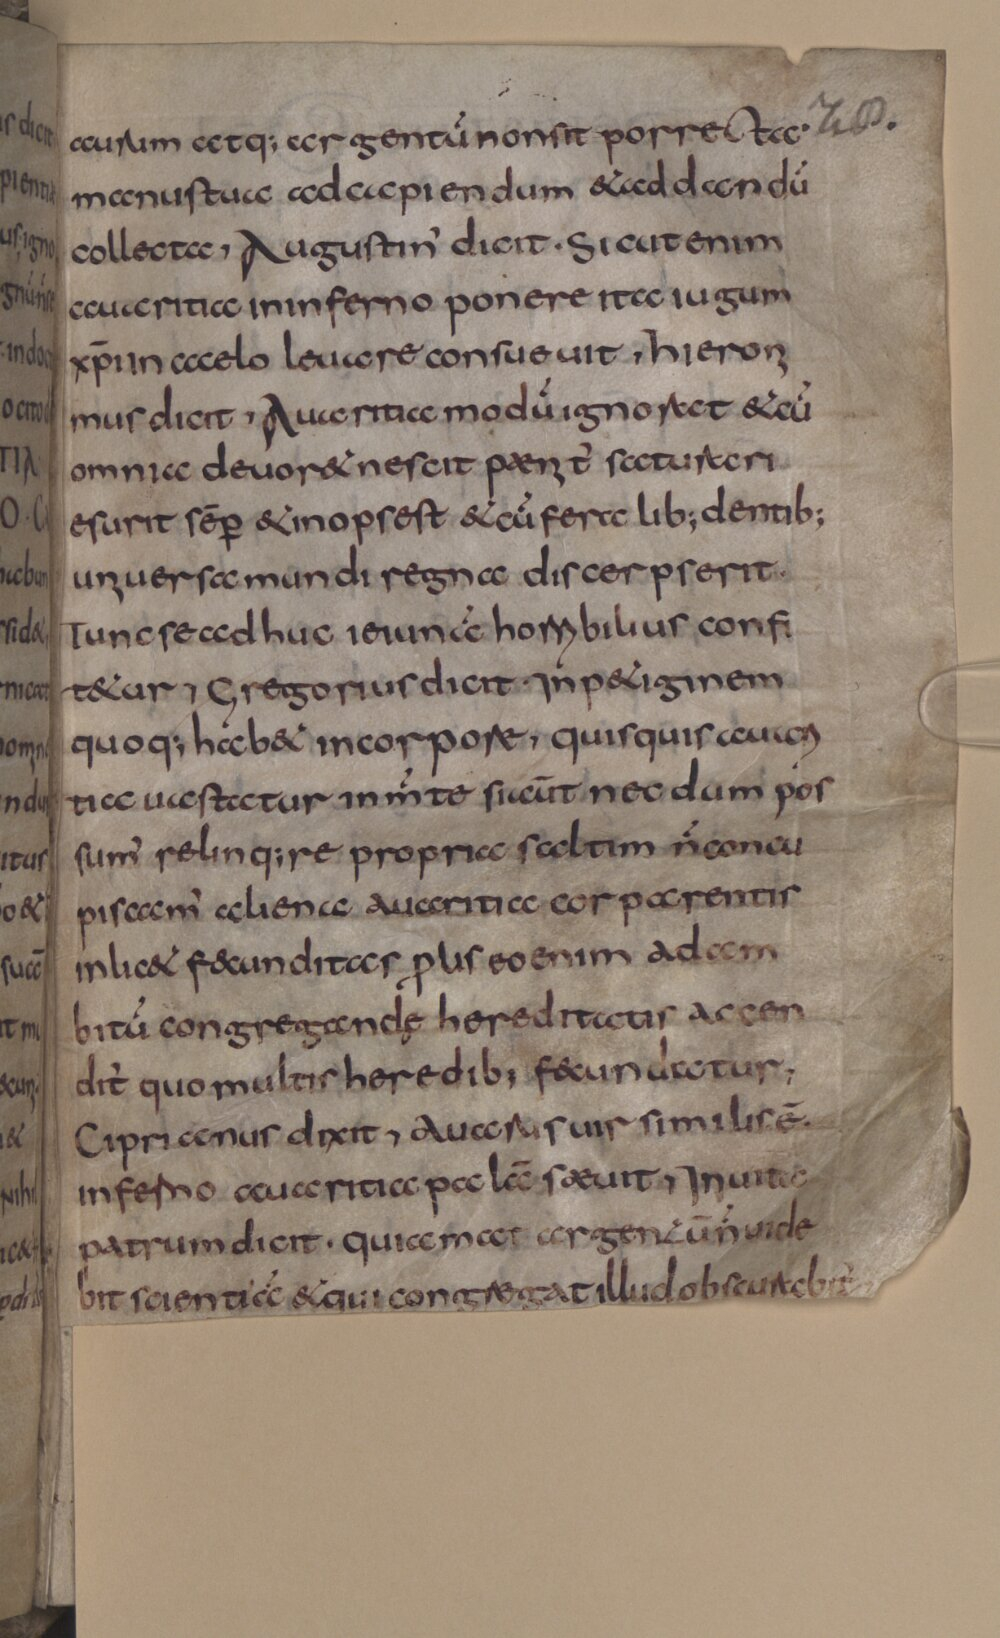 aurum atq; argentū non sit porrecta· 40.
manus tua ad accipiendum &ad dandū
collecta, Augustin' dicit· Sicut enim
auaritia in inferno ponere ita iugum
xp̄i in caelo leuare consueuit, hieroni
mus dicit, Auaritia modū ignorat &cū
omnia deuor& nescit paenit' saturari
esurit sēp &inops est &cū fera lib; dentib;
uniuersa mundi regna discerpserit·
Tunc se adhuc ieiunā horribilius confi
t&ur, Gregorius dicit· In p&iginem
quoq; hab& in corpore, quisquis auari
tia uastatur in m̄te sic sūt necdum pos
sum' relinq;re propria saltim n̄ concu
piscam' aliena auaritia cor parentis
inlic& fæcunditas plis eo enim ad am
bitū congregandę hereditatis accen
dit' quo multis heredib; fæcundatur;
Ciprianus dixit, Auarus uir similis ē·
inferno auaritia pala saeuit, In uita
patrum dicit· qui amat argentū n̄ uide
bit scientiā &qui congregat illud obscurabit'